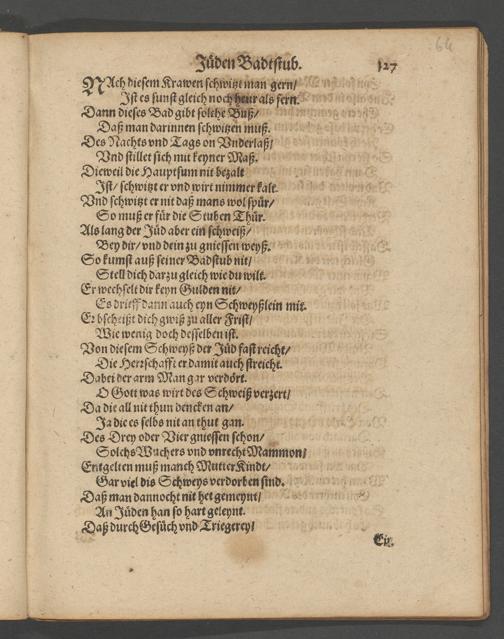 64
Jüden Badtstub. 127
NAch diesem Krawen schwitzt man gern/
Ist es sunst gleich noch heur als fern.
Dann dieses Bad gibt solche Buß/
Daß man darinnen schwitzen muß.
Des Nachts vnd Tags on Vnderlaß/
Vnd stillet sich mit keyner Maß.
Dieweil die Hauptsum nit bezalt
Ist/ schwitzt er vnd wirt nimmer kalt.
Vnd schwitzt er nit daß mans wol spür/
So muß er für die Stuben Thür.
Als lang der Jüd aber ein schweiß/
Bey dir/ vnd dein zu gniessen weyß.
So kumst auß seiner Badstub nit/
Stell dich darzu gleich wie du wilt.
Er wechselt dir keyn Gulden nit/
Es drieff dann auch eyn Schweyßlein mit.
Er bscheißt dich gwiß zu aller Frist/
Wie wenig doch desselben ist.
Von diesem Schweyß der Jüd fast reicht/
Die Herrschafft er damit auch streicht.
Dabei der arm Man gar verdört.
O Gott was wirt des Schweiß verzert/
Da die all nit thun dencken an/
Ja die es selbs nit an thut gan.
Des Drey oder Vier gniessen schon/
Solchs Wuchers vnd vnrecht Mammon/
Entgelten muß manch Mutter Kindt/
Gar viel dis Schweys verdorben sind.
Daß man dannocht nit het gemeynt/
An Jüden han so hart geleynt.
Daß durch Gesüch vnd Triegerey/